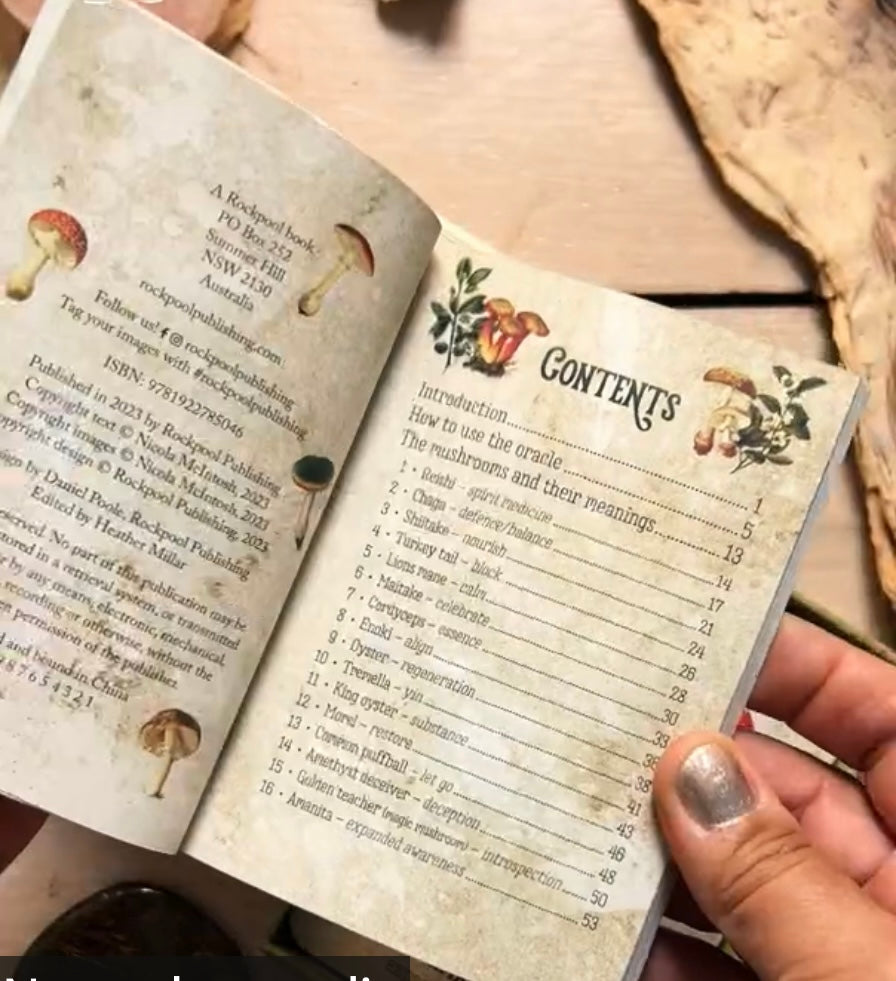 A Rockpool book
PO Box 252
Summer Hill
NSW 2130
Australia
rockpoolpublishing.com
Follow us! f rockpoolpublishing
Tag your images with #rockpoolpublishing
ISBN: 9781922785046
Published in 2023 by Rockpool Publishing
Copyright text © Nicola McIntosh, 2023
Copyright images © Nicola McIntosh, 2023
opyright design © Rockpool Publishing, 2023
sign by Daniel Poole, Rockpool Publishing
Edited by Heather Millar
served. No part of this publication may be
tored in a retrieval system, or transmitted
r by any means, electronic, mechanical,
recording or otherwise, without the
en permission of the publisher.
d and bound in China
9 8 7 6 5 4 3 2 1
CONTENTS
Introduction 1
How to use the oracle 5
The mushrooms and their meanings 13
1 • Reishi – spirit medicine 14
2 • Chaga – defence/balance 17
3 • Shiitake – nourish 21
4 • Turkey tail – block 24
5 • Lions mane – calm 26
6 • Maitake – celebrate 28
7 • Cordyceps – essence 30
8 • Enoki – align 33
9 • Oyster – regeneration 36
10 • Tremella – yin 38
11 • King oyster – substance 41
12 • Morel – restore 43
13 • Common puffball – let go 46
14 • Amethyst deceiver – deception 48
15 • Golden teacher (magic mushroom) – introspection 50
16 • Amanita – expanded awareness 53